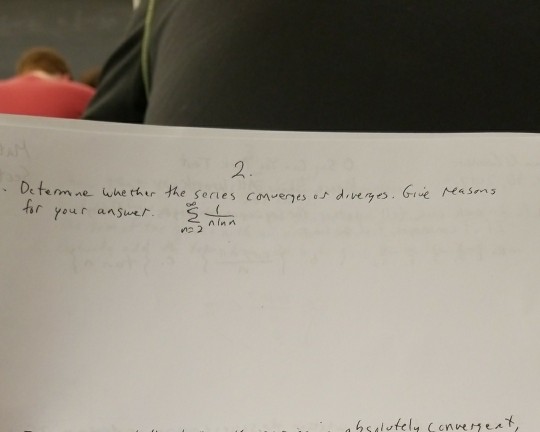 2.
. Determine whether the series converges or diverges. Give reasons
for your answer. ∞ Σ n=2 1/(n ln n)
absolutely convergent,